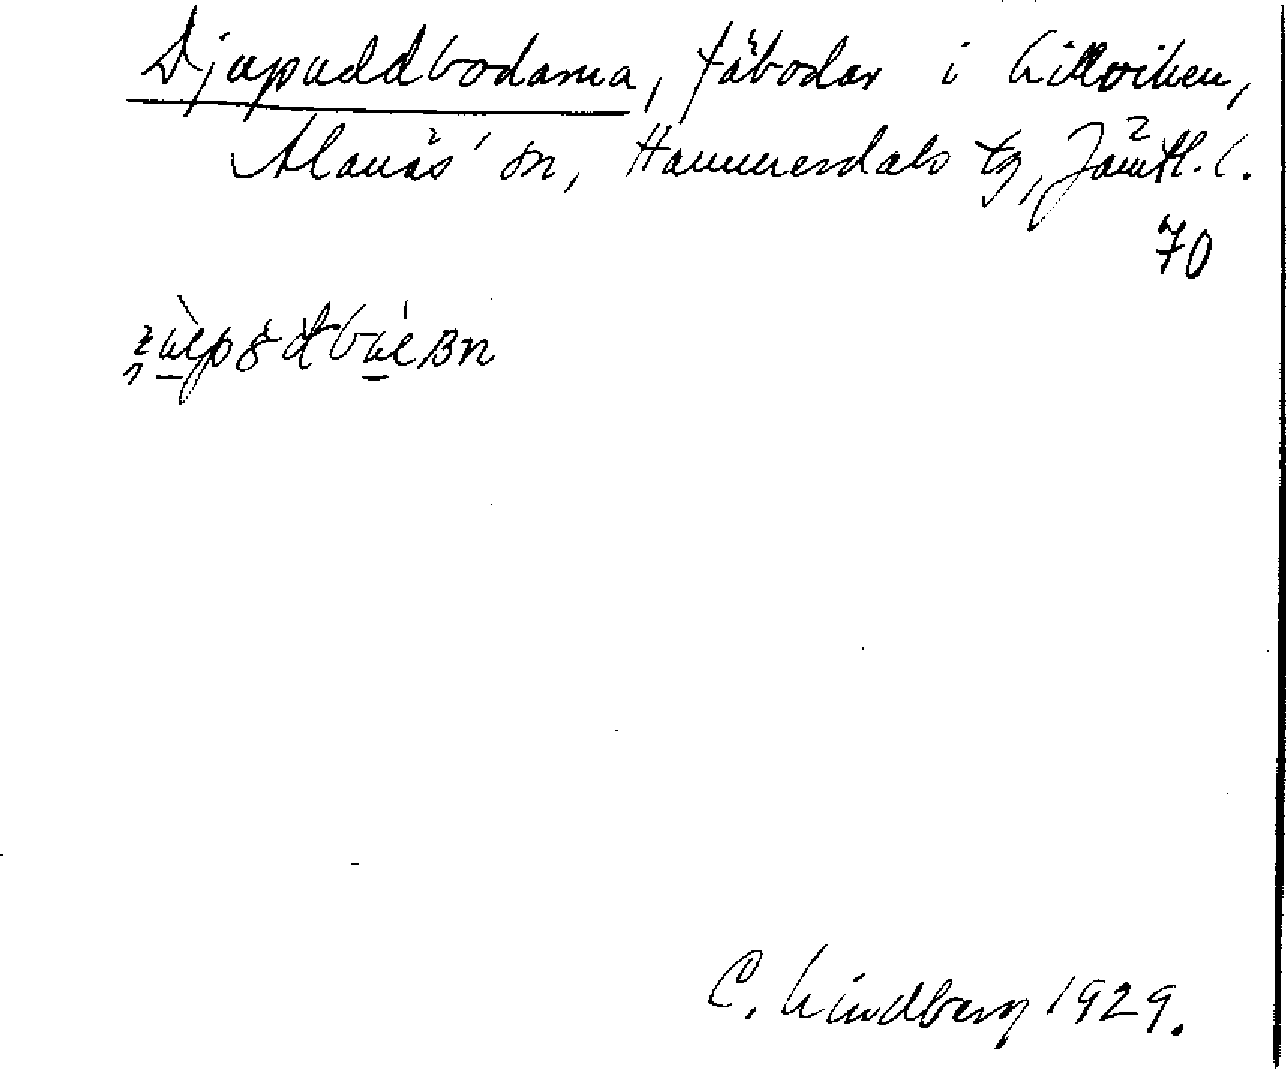 Djupuddbodarna, fäbodar i Lillviken,
Alanäs' sn, Hammerdals tg, Jämtl. l.
70
C. Lindberg 1929.